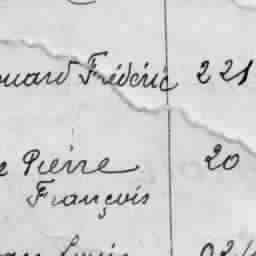 Frédéric 221
Pierre 20
François
Louis